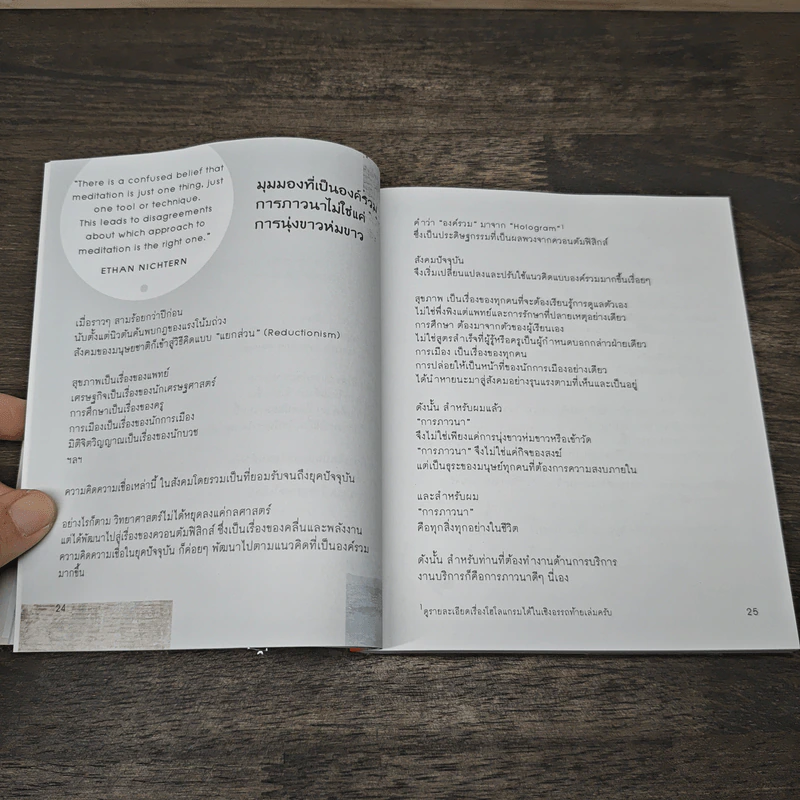 "There is a confused belief that
meditation is just one thing, just
one tool or technique.
This leads to disagreements
about which approach to
meditation is the right one."
ETHAN NICHTERN
มุมมองที่เป็นองค์รวม
การภาวนาไม่ใช่แค่
การนุ่งขาวห่มขาว
เมื่อราวๆ สามร้อยกว่าปีก่อน
นับตั้งแต่นิวตันค้นพบกฎของแรงโน้มถ่วง
สังคมของมนุษยชาติก็เข้าสู่วิธีคิดแบบ "แยกส่วน" (Reductionism)
สุขภาพเป็นเรื่องของแพทย์
เศรษฐกิจเป็นเรื่องของนักเศรษฐศาสตร์
การศึกษาเป็นเรื่องของครู
การเมืองเป็นเรื่องของนักการเมือง
มิติจิตวิญญาณเป็นเรื่องของนักบวช
ฯลฯ
ความคิดความเชื่อเหล่านี้ ในสังคมโดยรวมเป็นที่ยอมรับจนถึงยุคปัจจุบัน
อย่างไรก็ตาม วิทยาศาสตร์ไม่ได้หยุดลงแค่กลศาสตร์
แต่ได้พัฒนาไปสู่เรื่องของควอนตัมฟิสิกส์ ซึ่งเป็นเรื่องของคลื่นและพลังงาน
ความคิดความเชื่อในยุคปัจจุบัน ก็ค่อยๆ พัฒนาไปตามแนวคิดที่เป็นองค์รวม
มากขึ้น
24
คำว่า "องค์รวม" มาจาก "Hologram"¹
ซึ่งเป็นประดิษฐกรรมที่เป็นผลพวงจากควอนตัมฟิสิกส์
สังคมปัจจุบัน
จึงเริ่มเปลี่ยนแปลงและปรับใช้แนวคิดแบบองค์รวมมากขึ้นเรื่อยๆ
สุขภาพ เป็นเรื่องของทุกคนที่จะต้องเรียนรู้การดูแลตัวเอง
ไม่ใช่พึ่งพิงแต่แพทย์และการรักษาที่ปลายเหตุอย่างเดียว
การศึกษา ต้องมาจากตัวของผู้เรียนเอง
ไม่ใช่สูตรสำเร็จที่ผู้รู้หรือครูเป็นผู้กำหนดบอกกล่าวฝ่ายเดียว
การเมือง เป็นเรื่องของทุกคน
การปล่อยให้เป็นหน้าที่ของนักการเมืองอย่างเดียว
ได้นำหายนะมาสู่สังคมอย่างรุนแรงตามที่เห็นและเป็นอยู่
ดังนั้น สำหรับผมแล้ว
"การภาวนา"
จึงไม่ใช่เพียงแค่การนุ่งขาวห่มขาวหรือเข้าวัด
"การภาวนา" จึงไม่ใช่แค่กิจของสงฆ์
แต่เป็นธุระของมนุษย์ทุกคนที่ต้องการความสงบภายใน
และสำหรับผม
"การภาวนา"
คือทุกสิ่งทุกอย่างในชีวิต
ดังนั้น สำหรับท่านที่ต้องทำงานด้านการบริการ
งานบริการก็คือการภาวนาดีๆ นี่เอง
¹ดูรายละเอียดเรื่องโฮโลแกรมได้ในเชิงอรรถท้ายเล่มครับ
25